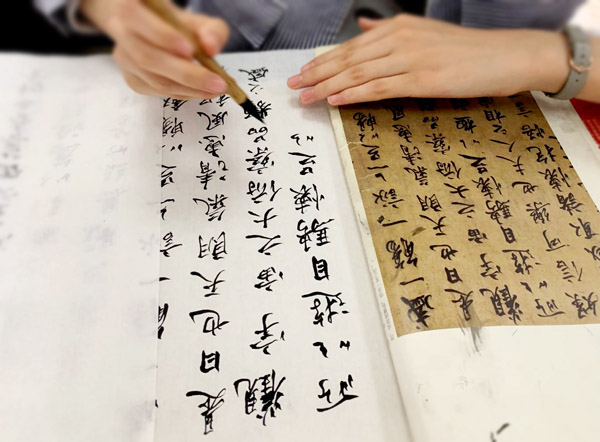 是日也天朗氣清惠風和
觀宇宙之大俯察品類之盛
所以遊目騁懷足以
盛一觴一詠亦足以暢
是日也天朗氣清惠風
觀宇宙之大俯察品類
所以遊目騁懷足以極
娛信可樂也夫人之相
或取諸懷抱悟言